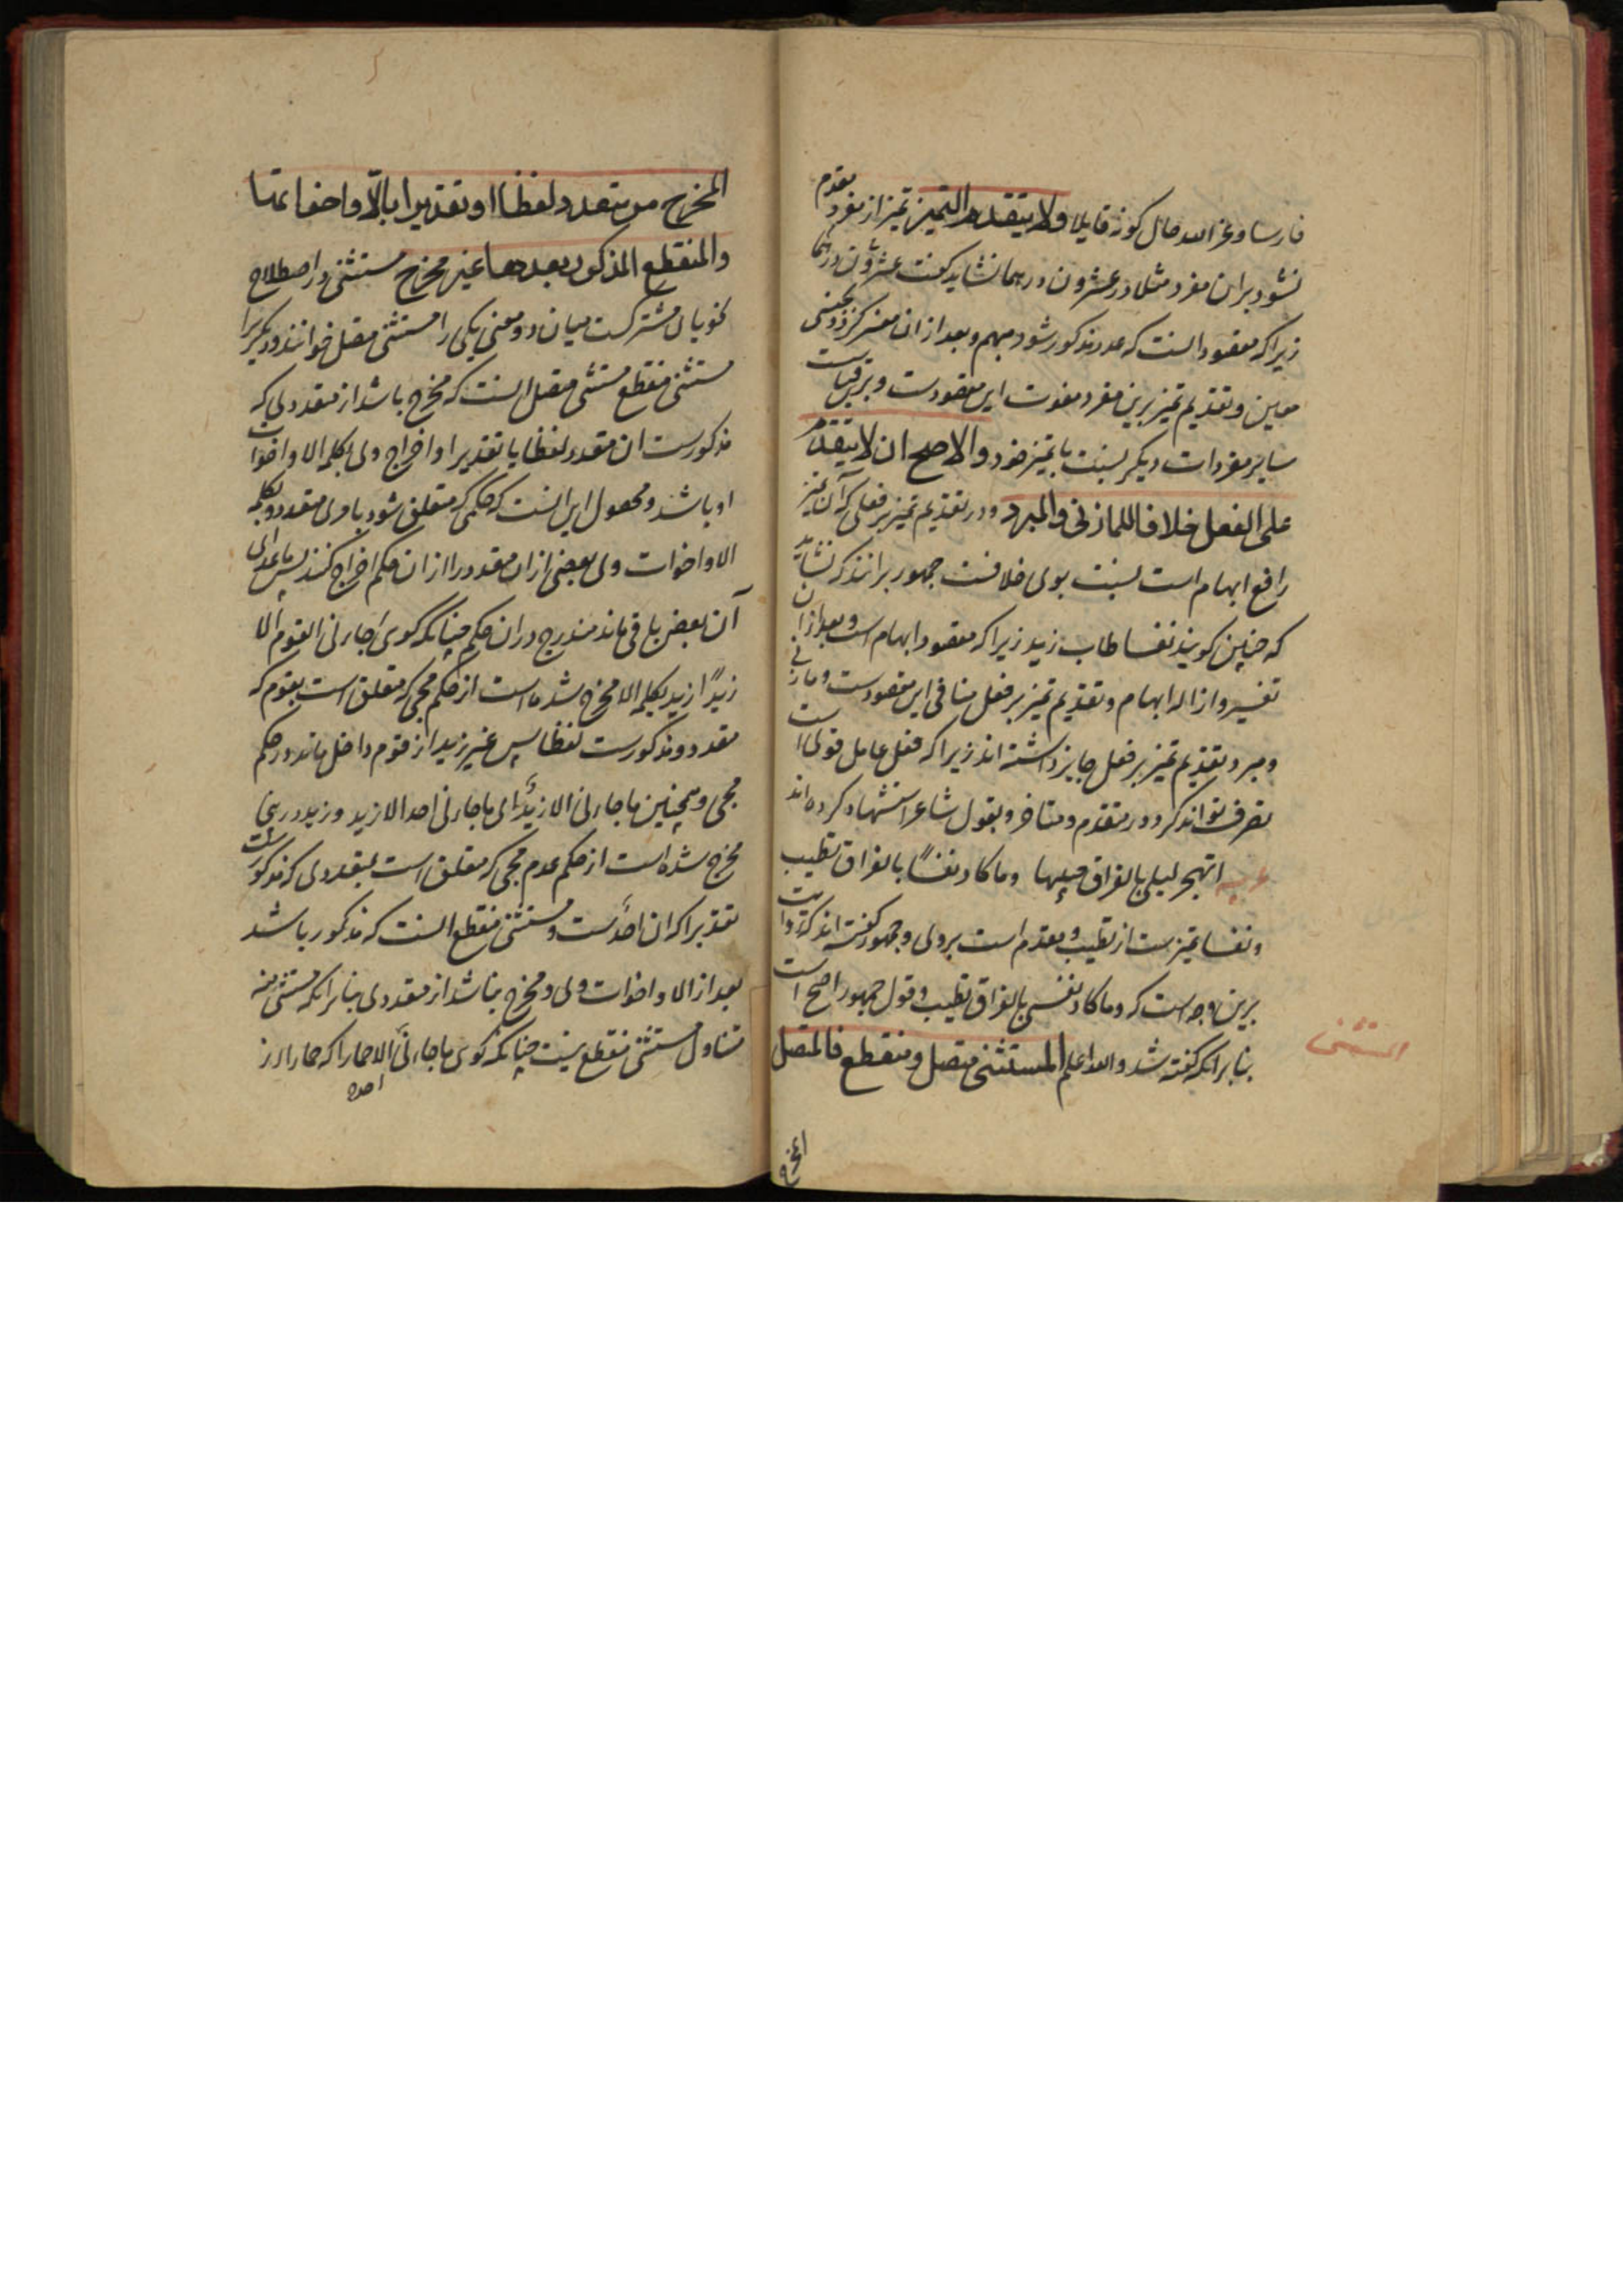 فارسا و عز الله حال کونه قایلا ولا یتقدم التمییز تمیز از مفرد مقدم
نشود بران مفرد مثلا در عشرون درهما نشاید گفت عشرون درهما
زیرا که مقصود انست که عدد مذکور شود مبهم و بعد ازان مفسر کردد بجنسی
معین و تقدیم تمیز برین مفرد مفوت این مقصودست و برین قیاست
سایر مفردات دیکر بنسبت با تمیز خود والاصح ان لا یتقدم
علی الفعل خلافا للمازنی والمبرد و در تقدیم تمیز بر فعلی که آن تمیز
رافع ابهام است بنسبت بوی خلافست جمهور برانند که نشاید
که چنین کویند نفسا طاب زید زیرا که مقصود ابهام است و بعد ازان
تفسیر و ازاله ابهام و تقدیم تمیز بر فعل منافی این مقصودست و مازنی
و مبرد تقدیم تمیز بر فعل جایز داشته اند زیرا که فعل عامل قولی است
تصرف تواند کرد در متقدم و متاخر و بقول شاعر استشهاد کرده اند
عربیه اتهجر لیلی بالفراق حبیبها وما کاد نفسًا بالفراق تطیب
و نفسا تمیزست از تطیب و مقدم است بر وی و جمهور کفته اند که روایت
برین وجه است که وما کاد نفسی بالفراق تطیب و قول جمهور اصح است
بنا بر انکه کفته شد والله اعلم المستثنی متصل ومنقطع فالمتصل
المستثنی
المخرج
المخرج من متعدد لفظا او تقدیرا بالّا واخواتها
والمنقطع المذکور بعدها غیر مخرج مستثنی در اصطلاح
نحویان مشترکست میان دو معنی یکی را مستثنی متصل خوانند و دیکریرا
مستثنی منقطع مستثنی متصل انست که مخرج باشد از متعددی که
مذکورست ان متعدد لفظا یا تقدیرا و اخراج وی بکلمه الا و اخوات
او باشد و محصول این انست که حکمی که متعلق شود باوی متعدد و بکلمه
الا و اخوات وی بعضی ازان متعدد را ازان حکم اخراج کنند پس ماعدای
آن بعض باقی ماند مندرج دران حکم چنانکه کوی جاءنی القوم الا
زیدًا زید بکلمه الا مخرج شده است از حکم مجی که متعلق است بقوم که
متعدد و مذکورست لفظا پس غیر زید از قوم داخل ماند در حکم
مجی و همچنین ما جاءنی الا زیدٌ ای ما جاءنی احد الا زید و زید درین
مخرج شده است از حکم عدم مجی که متعلق است بمتعددی که مذکورست
تقدیرا که ان احدست و مستثنی منقطع انست که مذکور باشد
بعد از الا و اخوات وی و مخرج نباشد از متعددی بنا بر انکه مستثنی منه
متناول مستثنی منقطع نیست چنانکه کوی ما جاءنی الا حمارا که حمار از
احد